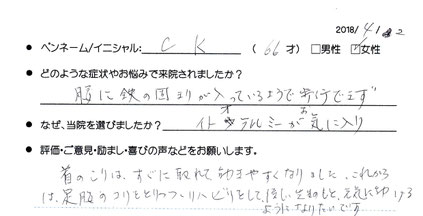 2018/4/22
● ペンネーム/イニシャル: C K (66才) □男性 ☑女性
● どのような症状やお悩みで来院されましたか?
腰に鉄の固まりが入っているようで歩行できず
● なぜ、当院を選びましたか?
イトオテルミーがお気に入り
● 評価・ご意見・励まし・喜びの声などをお願いします。
首のこりは、すぐに取れて動きやすくなりました。これから
は、足腰のコリをとりつつリハビリをして、元気に動ける
ようになりたいです